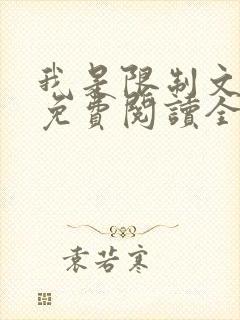 我是限制文
免費閱讀全
袁若寒